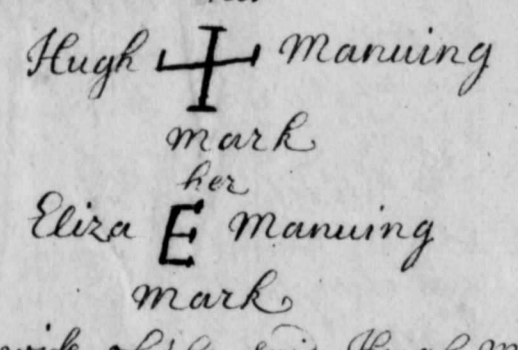 Hugh Manuing
mark
her
Eliza E Manuing
mark